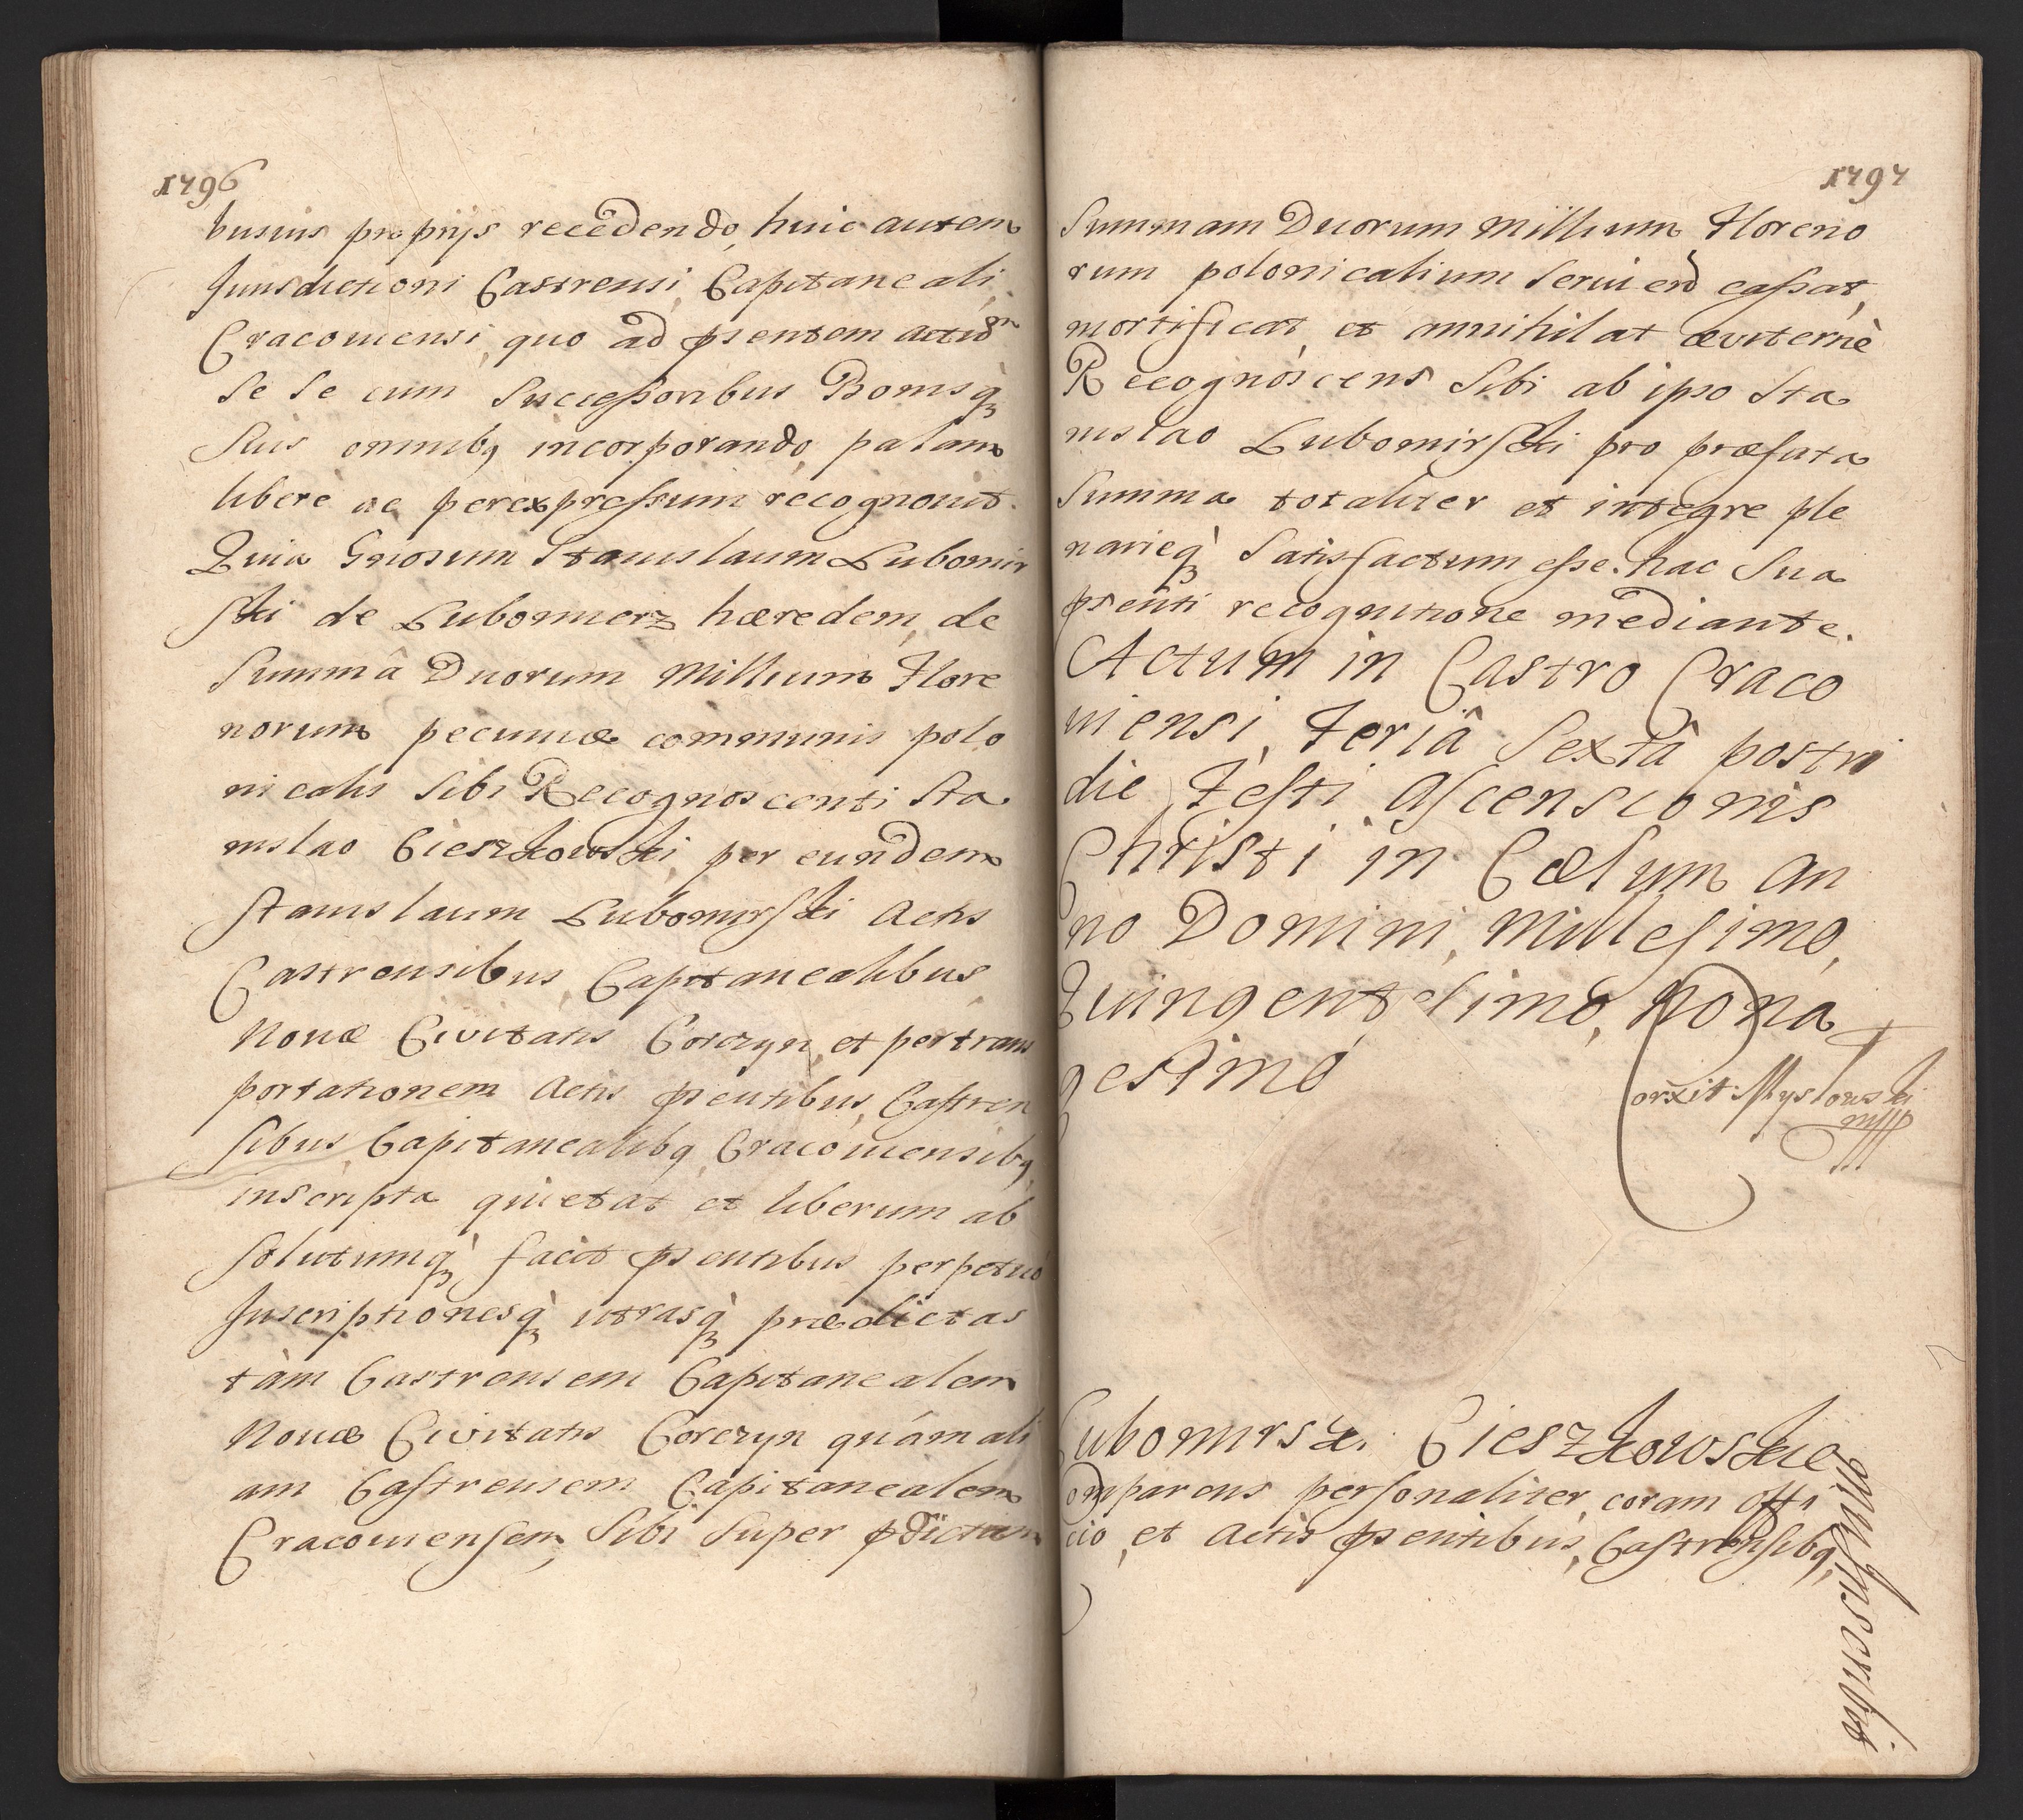 1796
busuis proprijs recedendo, huic autem
Jurisdictioni Castrensi, Capitaneali,
Cracouiensi, quo ad pñsentem actum
Se Se cum Successoribus Bonisq̀
Suis omnibq incorporando, palam
libere ac per expressum recognouit.
Quia Gñosum Stanislaum Lubomir
ski de Lubomierz hæredem, de
Summâ Duorum Millium Flore
norum pecuniæ communis polo
nicalis Sibi Recognoscenti Sta
nislao Cieszkowski, per eundem
Stanislaum Lubomirski Actis
Castrensibus, Capitanealibus
Nouæ Civitatis Corczyn, et per trans
portationem Actis pñsentibus, Castren
sibus, Capitanealibq, Cracouiensibq,
inscripta quietat et liberum ab
solutumq̀ facit pñsentibus perpetuò
Inscriptionesq̀ utrasq̀ prædictas
tàm Castrensem Capitanealem
Nouæ Civitatis Corczyn quám ali
am Castrensem Capitanealem
Cracouiensem, Sibi Super pdictam
1797
Summam Duorum Millium Floreno
rum polonicalium Seruien̄ cassat,
mortificat, et annihilat æviternè
Recognoscens Sibi ab ipso Sta
nislao Lubomirski pro præfata
Summa totaliter et integre ple
narieq̀ Satisfactum esse. hac Sua
pñsenti recognitione mediante.
Actum in Castro Craco
uiensi, Feriâ Sextâ postri
die Festi Ascensionis
Christi in Cælum An
no Domini, Millesimo,
Quingentesimo, Nona
gesimo
Corr̄xit Mysłowski
mpp
Lubomirski Cieszkowskie
Comparens personaliter, coram Offi
cio, et Actis pñsentibus, Castrensibq,
inscribit